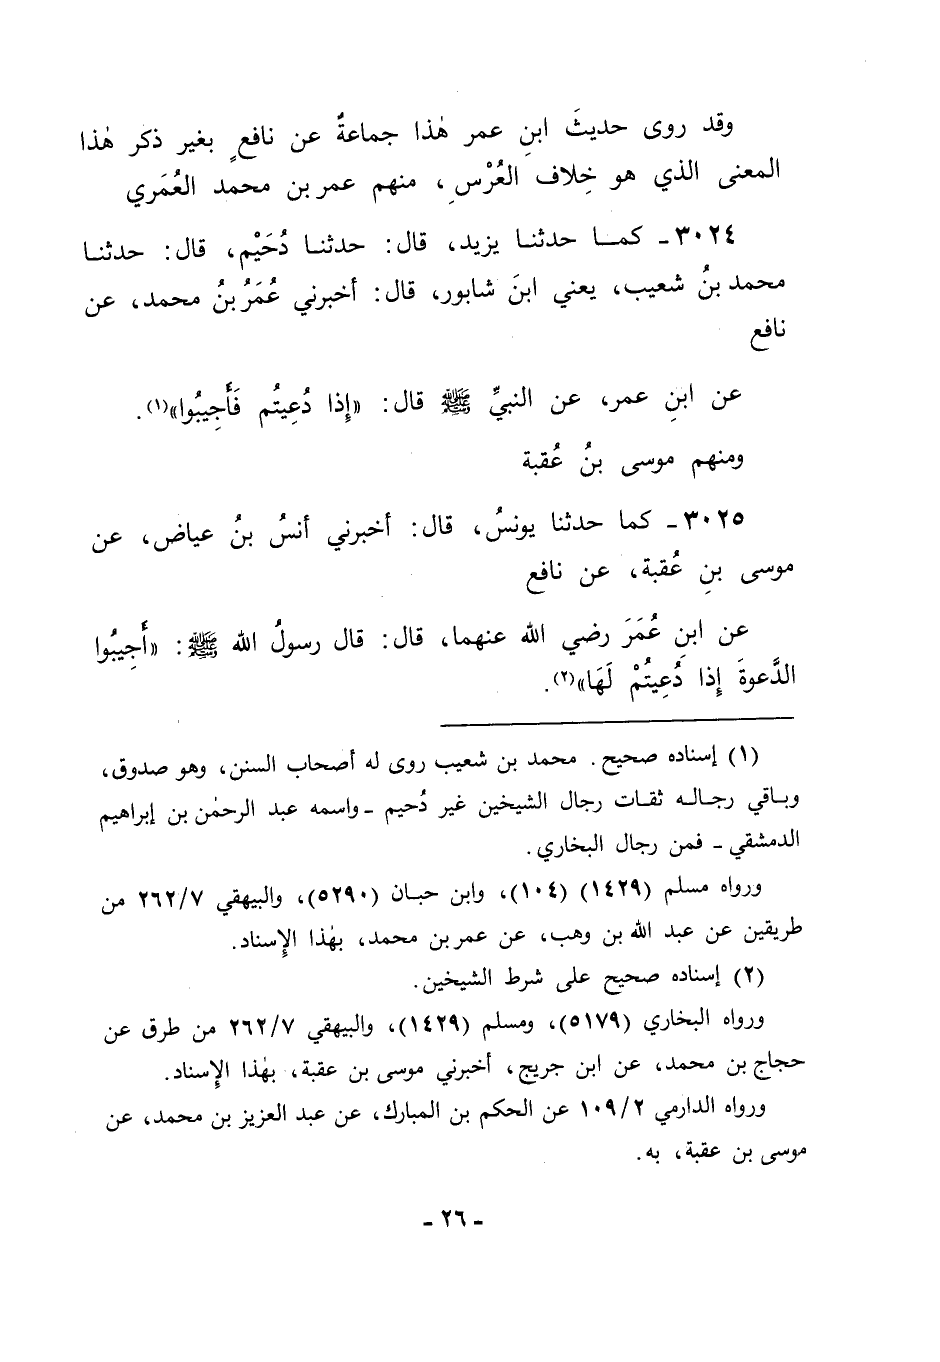 وقد روى حديثَ ابنِ عمر هٰذا جماعةٌ عن نافعٍ بغير ذكر هٰذا
المعنى الذي هو خِلاف العُرْسِ، منهم عمر بن محمد العُمَري
٣٠٢٤ـ كمـا حدثنـا يزيد، قال: حدثنـا دُحَيْم، قال: حدثنـا
محمد بنُ شعيب، يعني ابنَ شابور، قال: أخبرني عُمَرُ بنُ محمد، عن
نافع
عن ابنِ عمر، عن النبيِّ ﷺ قال: «إذا دُعِيتُم فَأَجِيبُوا»(١).
ومنهم موسى بنُ عُقبة
٣٠٢٥ـ كما حدثنا يونسُ، قال: أخبرني أنسُ بنُ عياض، عن
موسى بنِ عُقبة، عن نافع
عن ابنِ عُمَرَ رضي الله عنهما، قال: قال رسولُ الله ﷺ: «أَجِيبُوا
الدَّعوةَ إذا دُعِيتُمْ لَهَا»(٢).
(١) إسناده صحيح. محمد بن شعيب روى له أصحاب السنن، وهو صدوق،
وبـاقي رجـالـه ثقـات رجال الشيخين غير دُحيم ـ واسمه عبد الرحمٰن بن إبراهيم
الدمشقي ـ فمن رجال البخاري.
ورواه مسلم (١٤٢٩) (١٠٤)، وابن حبـان (٥٢٩٠)، والبيهقي ٢٦٢/٧ من
طريقين عن عبد الله بن وهب، عن عمر بن محمد، بهٰذا الإسناد.
(٢) إسناده صحيح على شرط الشيخين.
ورواه البخاري (٥١٧٩)، ومسلم (١٤٢٩)، والبيهقي ٢٦٢/٧ من طرق عن
حجاج بن محمد، عن ابن جريج، أخبرني موسى بن عقبة، بهٰذا الإسناد.
ورواه الدارمي ١٠٩/٢ عن الحكم بن المبارك، عن عبد العزيز بن محمد، عن
موسى بن عقبة، به.
ـ ٢٦ ـ